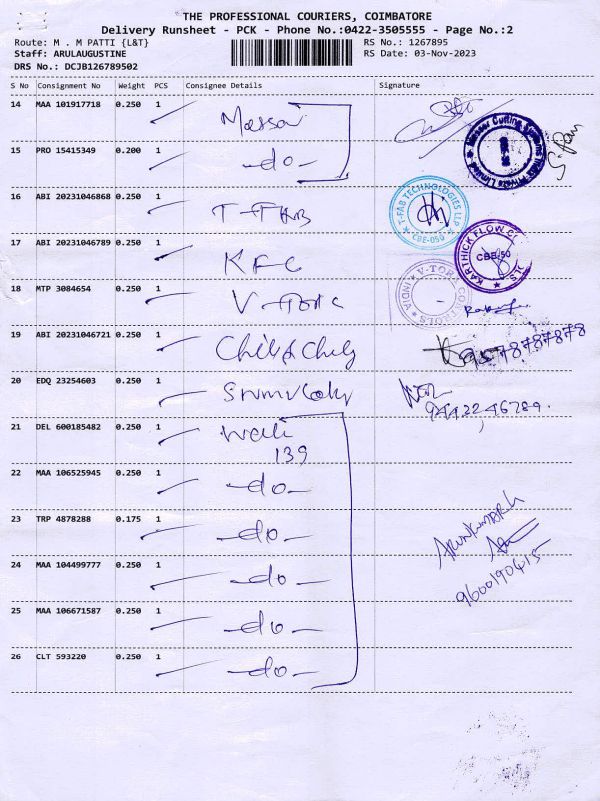 THE PROFESSIONAL COURIERS, COIMBATORE
Delivery Runsheet - PCK - Phone No.:0422-3505555 - Page No.:2
Route: M . M PATTI {L&T} RS No.: 1267895
Staff: ARULAUGUSTINE RS Date: 03-Nov-2023
DRS No.: DCJB126789502
S No Consignment No Weight PCS Consignee Details Signature
14 MAA 101917718 0.250 1
15 PRO 15415349 0.200 1 -do-
16 ABI 20231046868 0.250 1
T-FAB TECHNOLOGIES LLP
CBE-050
17 ABI 20231046789 0.250 1 KFC
KARTHICK FLOW
CBE-50
18 MTP 3084654 0.250 1 V-TORC
V-TORK CONTROLS
INDIA
19 ABI 20231046721 0.250 1
9578787878
20 EDQ 23254603 0.250 1
9442246789.
21 DEL 600185482 0.250 1
139
22 MAA 106525945 0.250 1 -do-
23 TRP 4878288 0.175 1 -do-
ARUNKUMAR
24 MAA 104499777 0.250 1 -do-
9600190415
25 MAA 106671587 0.250 1 -do-
26 CLT 593220 0.250 1 -do-